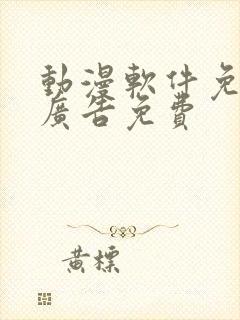 動漫軟件免
廣告免費
黃標